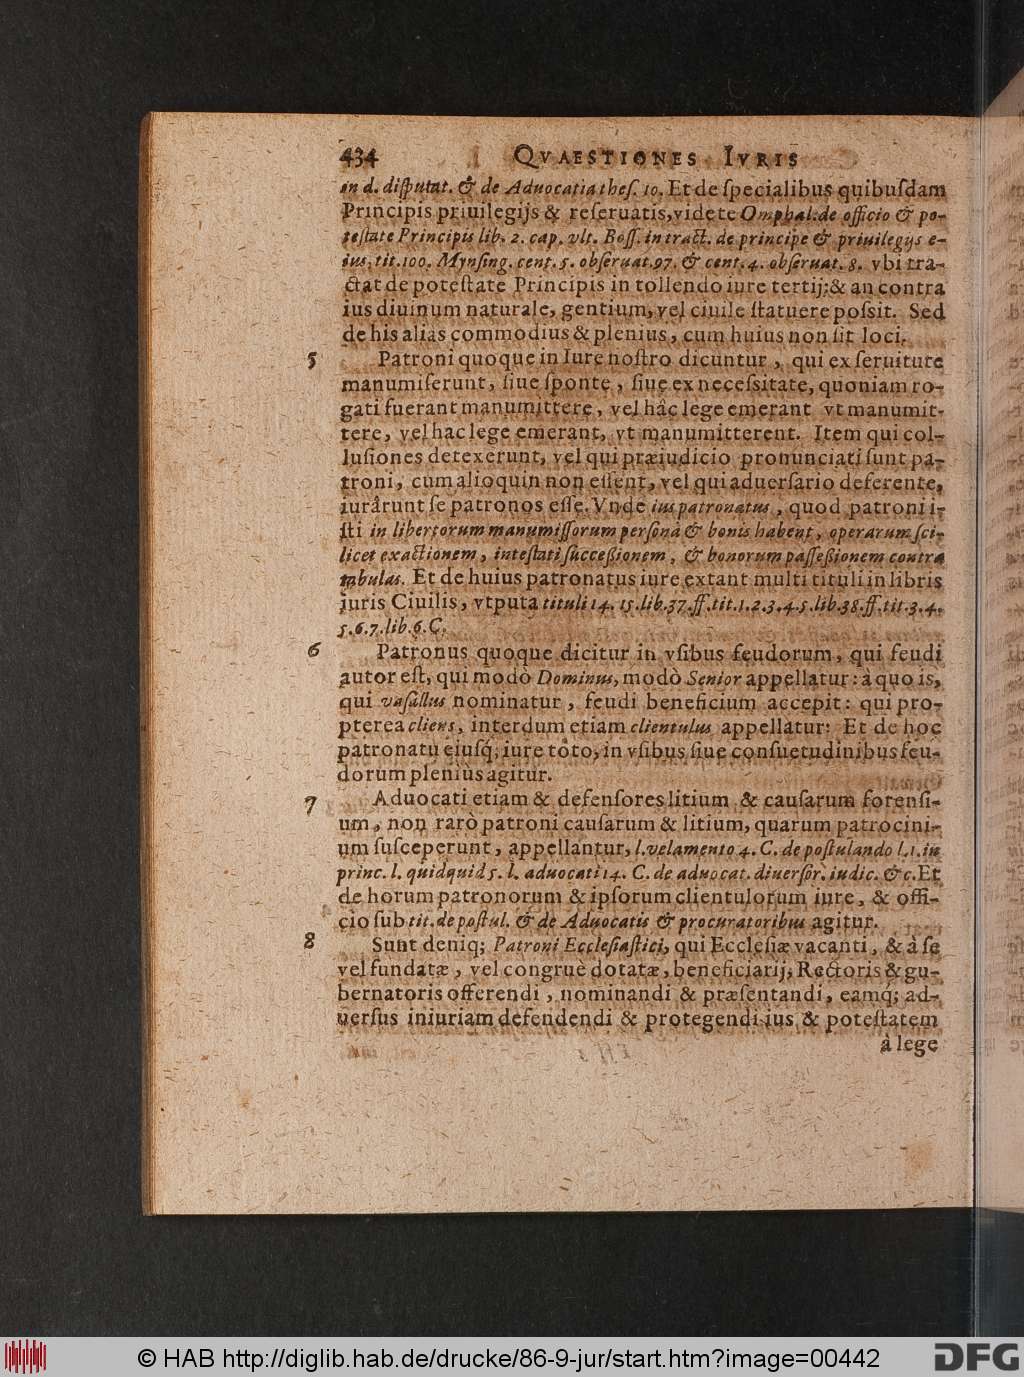 434 QVAESTIONES IVRIS
in d. disputat. & de Aduocatia thes. 10. Et de ſpecialibus quibuſdam
Principis priuilegijs & reſeruatis, videte Omphal: de officio & po-
teſtate Principis lib. 2. cap. vlt. Boſſ. in tract. de principe & priuilegijs e-
ius, tit. 100. Mynſing. cent. 5. obſeruat. 97. & cent. 4. obſeruat. 8. vbi tra-
ctat de poteſtate Principis in tollendo iure tertij; & an contra
ius diuinum naturale, gentium, vel ciuile ſtatuere poſsit. Sed
de his aliàs commodius & plenius, cum huius non ſit loci.
5 Patroni quoque in Iure noſtro dicuntur, qui ex ſeruitute
manumiſerunt, ſiue ſponte, ſiue ex neceſsitate, quoniam ro-
gati fuerant manumittere, vel hâc lege emerant vt manumit-
tere, vel hac lege emerant, vt manumitterent. Item qui col-
luſiones detexerunt, vel qui præiudicio pronunciati ſunt pa-
troni, cum alioquin non eſſent, vel qui aduerſario deferente,
iurârunt ſe patronos eſſe. Vnde ius patronatus, quod patroni i-
ſti in libertorum manumiſſorum perſonâ & bonis habent, operarum ſci-
licet exactionem, inteſtati ſucceßionem, & bonorum paſſeßionem contra
tabulas. Et de huius patronatus iure extant multi tituli in libris
iuris Ciuilis, vtputa tituli 14. 15. lib. 37. ff. tit. 1. 2. 3. 4. 5. lib. 38. ff. tit. 3. 4.
5. 6. 7. lib. 6. C.
6 Patronus quoque dicitur in vſibus feudorum, qui feudi
autor eſt, qui modò Dominus, modò Senior appellatur: à quo is,
qui vaſallus nominatur, feudi beneficium accepit: qui pro-
pterea cliens, interdum etiam clientulus appellatur: Et de hoc
patronatu eiuſq́; iure tôto, in vſibus ſiue conſuetudinibus feu-
dorum pleniùs agitur.
7 Aduocati etiam & defenſores litium & cauſarum forenſi-
um, non rarò patroni cauſarum & litium, quarum patrocini-
um ſuſceperunt, appellantur, l. velamento 4. C. de poſtulando l. 1. in
princ. l. quidquid 5. l. aduocati 14. C. de aduocat. diuerſor. iudic. & c. Et
de horum patronorum & ipſorum clientulorum iure, & offi-
cio ſub tit. de poſtul. & de Aduocatis & procuratoribus agitur.
8 Sunt deniq; Patroni Eccleſiaſtici, qui Eccleſiæ vacanti, & à ſe
vel fundatæ, vel congruè dotatæ, beneficiarij; Rectoris & gu-
bernatoris offerendi, nominandi & præſentandi, eamq́; ad-
uerſus iniuriam defendendi & protegendi ius & poteſtatem
à lege
© HAB http://diglib.hab.de/drucke/86-9-jur/start.htm?image=00442
DFG